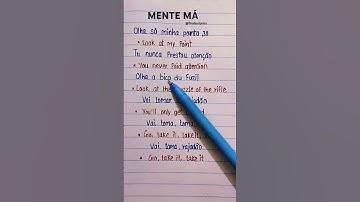 MENTE MÁ
Olha só minha ponto 30
• Look at my Point
Tu nunca Prestou atenção
• You never Paid attention
Olha a bico du Fuzil
• Look at the zzle of the rifle
Vai tomar rajadão
• You'll only get
Vai, toma, rajadão
• Go, take it, take it
Vai, toma, rajadão
• Go, take it, take it